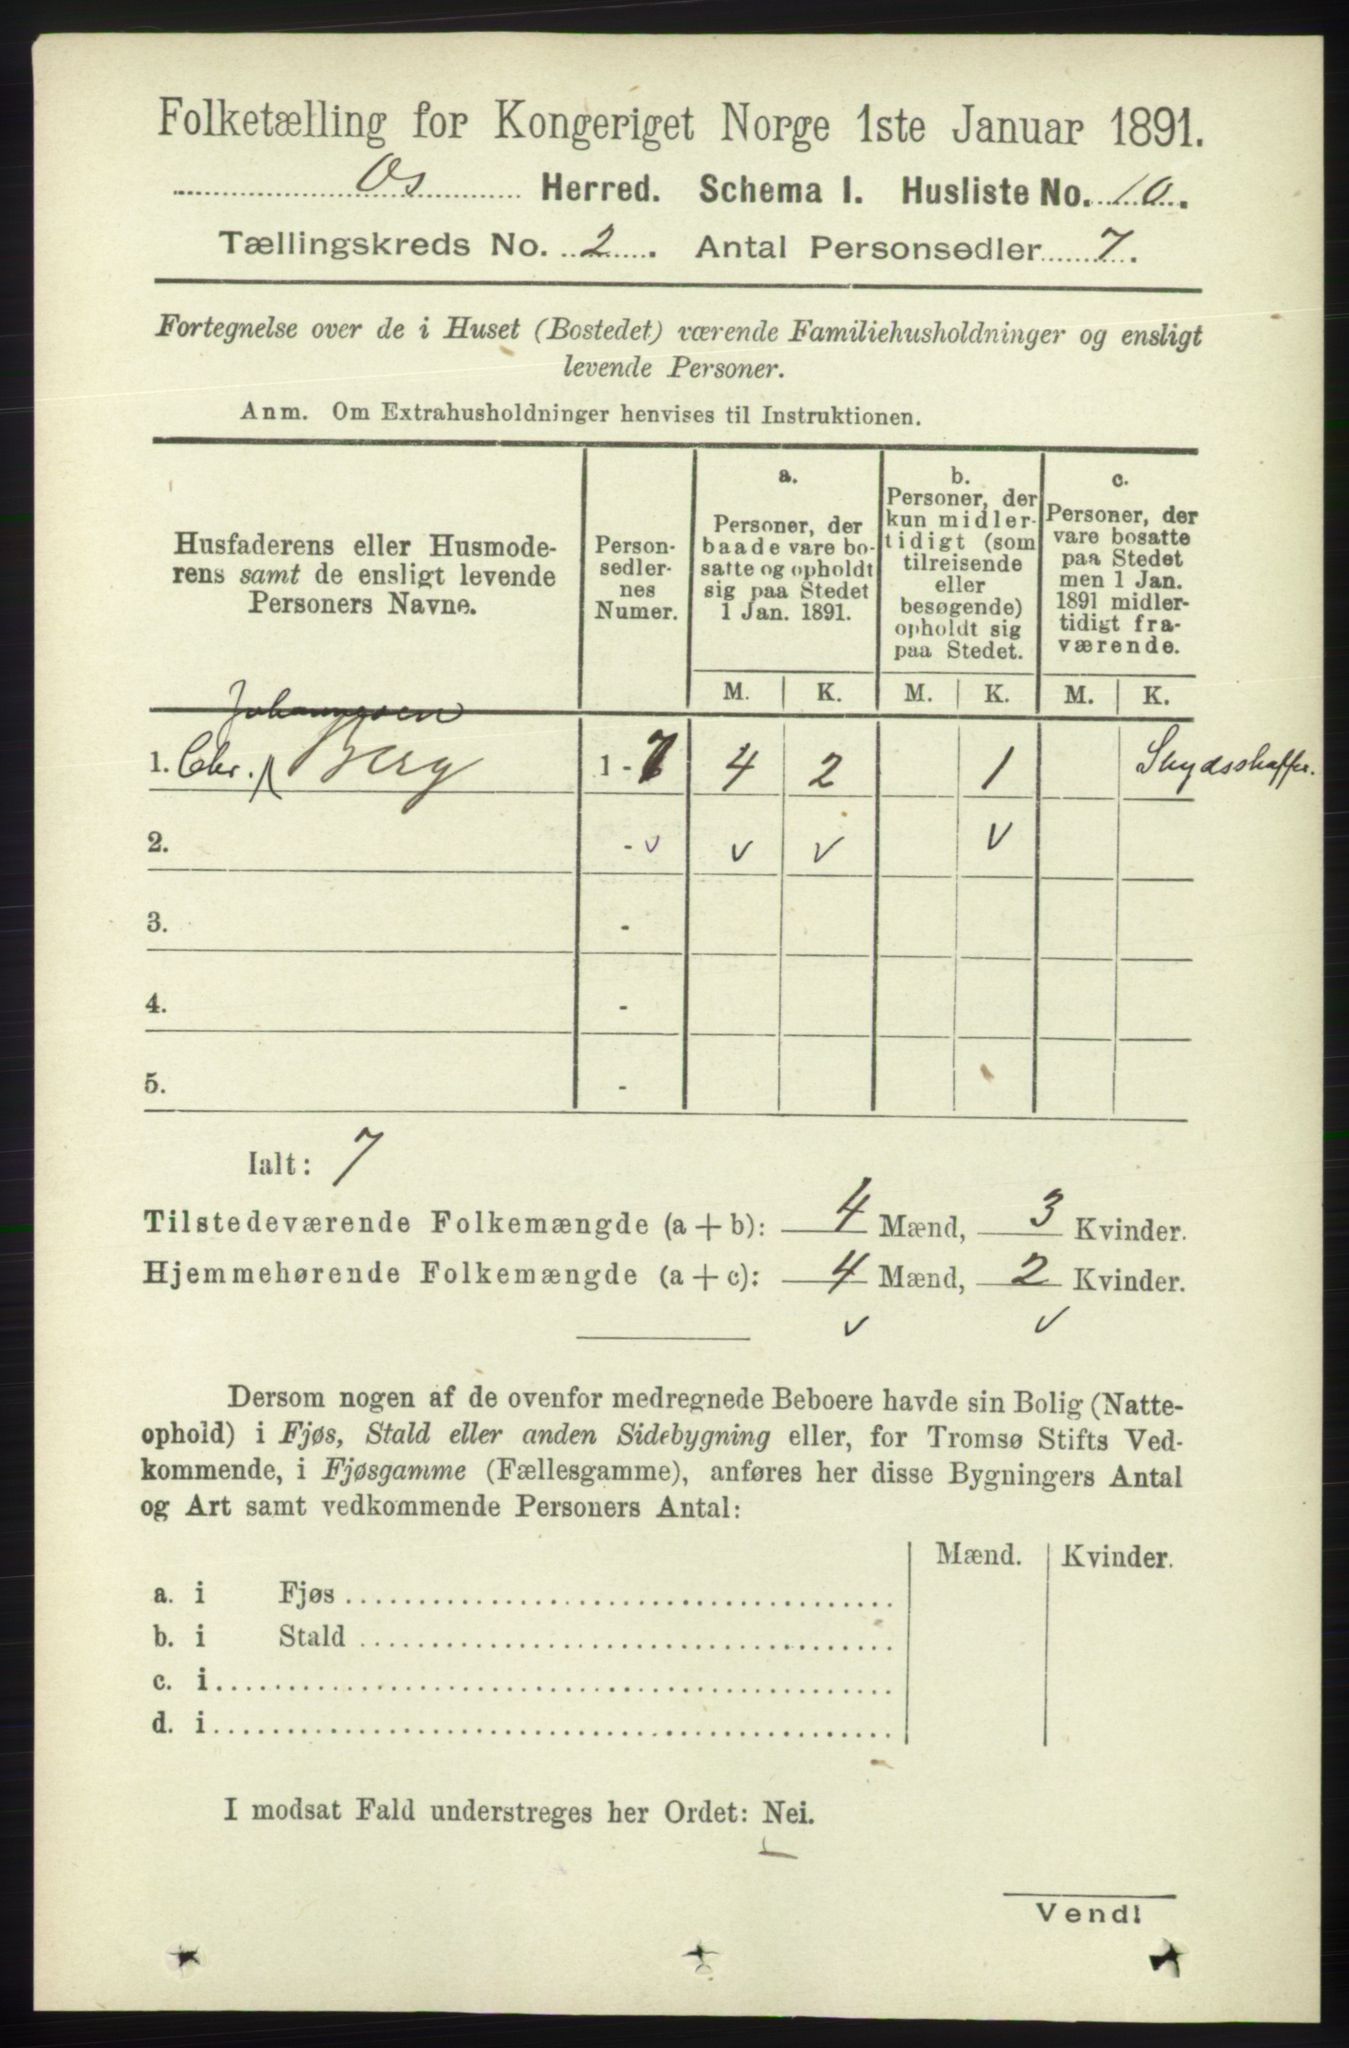 Folketælling for Kongeriget Norge 1ste Januar 1891.
Os Herred. Schema I. Husliste No. 10.
Tællingskreds No. 2. Antal Personsedler 7.
Fortegnelse over de i Huset (Bostedet) værende Familiehusholdninger og ensligt
levende Personer.
Anm. Om Extrahusholdninger henvises til Instruktionen.
Husfaderens eller Husmode-
rens samt de ensligt levende
Personers Navne.
Person-
sedler-
nes
Numer.
a.
Personer, der
baade vare bo-
satte og opholdt
sig paa Stedet
1 Jan. 1891.
b.
Personer, der
kun midler-
tidigt (som
tilreisende
eller
besøgende)
opholdt sig
paa Stedet.
c.
Personer, der
vare bosatte
paa Stedet
men 1 Jan.
1891 midler-
tidigt fra-
værende.
M. K. M. K. M. K.
Johannesen
1. Chr. Berg 1 - 7 4 2 1 Skydsskaffer.
2. - v v v v
3. -
4. -
5. -
Ialt: 7
Tilstedeværende Folkemængde (a + b): 4 Mænd, 3 Kvinder.
Hjemmehørende Folkemængde (a + c): 4 Mænd, 2 Kvinder.
v v
Dersom nogen af de ovenfor medregnede Beboere havde sin Bolig (Natte-
ophold) i Fjøs, Stald eller anden Sidebygning eller, for Tromsø Stifts Ved-
kommende, i Fjøsgamme (Fællesgamme), anføres her disse Bygningers Antal
og Art samt vedkommende Personers Antal:
Mænd. Kvinder.
a. i Fjøs
b. i Stald
c. i
d. i
I modsat Fald understreges her Ordet: Nei.
Vend!